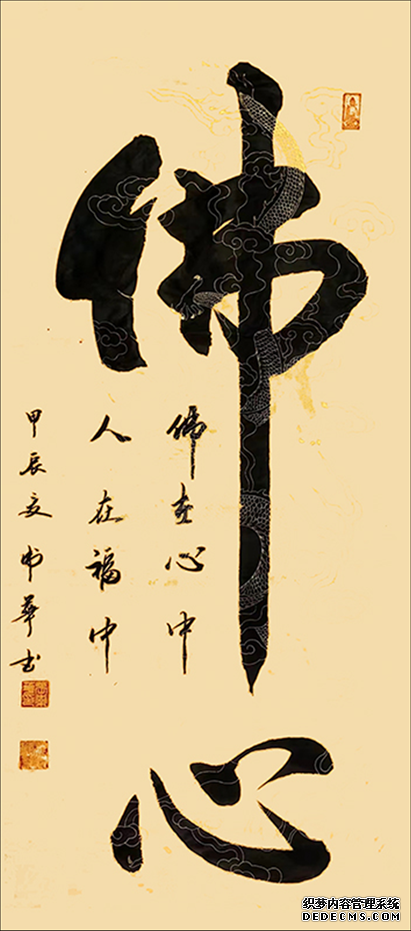 佛心
佛在心中
人在福中
甲辰夏 華书
织梦内容管理系统
DEDECMS.COM